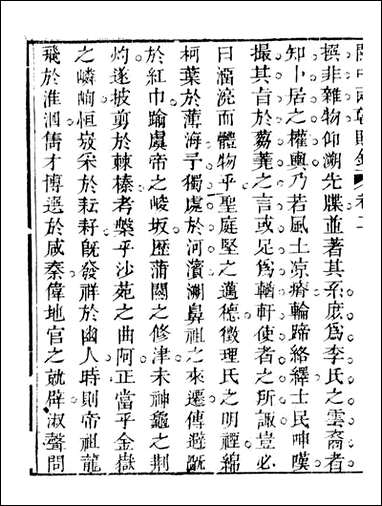 撰非雜物仰溯先牒並著其系庶為李氏之雲裔者
知卜居之權輿乃若風土凉瘠輪蹄絡繹士民呻嘆
撮其言於蒭蕘之言或足為輶軒使者之所諏豈必
曰瀏而體物乎聖庭堅之邁德徵理氏之明禋綿
柯葉於薄海予獨處於河濱溯鼻祖之來遷傳避
於紅巾踰虞帝之峻坂歷蒲關之修津未神龜之荆
灼遂披剪於棘榛考槃乎沙苑之曲阿正當乎金嶽
之嶙峋恒采於耘耔旣發祥於豳人時則帝祖龍
飛於淮泗儁才博選於咸秦偉地官之就辟淑聲問